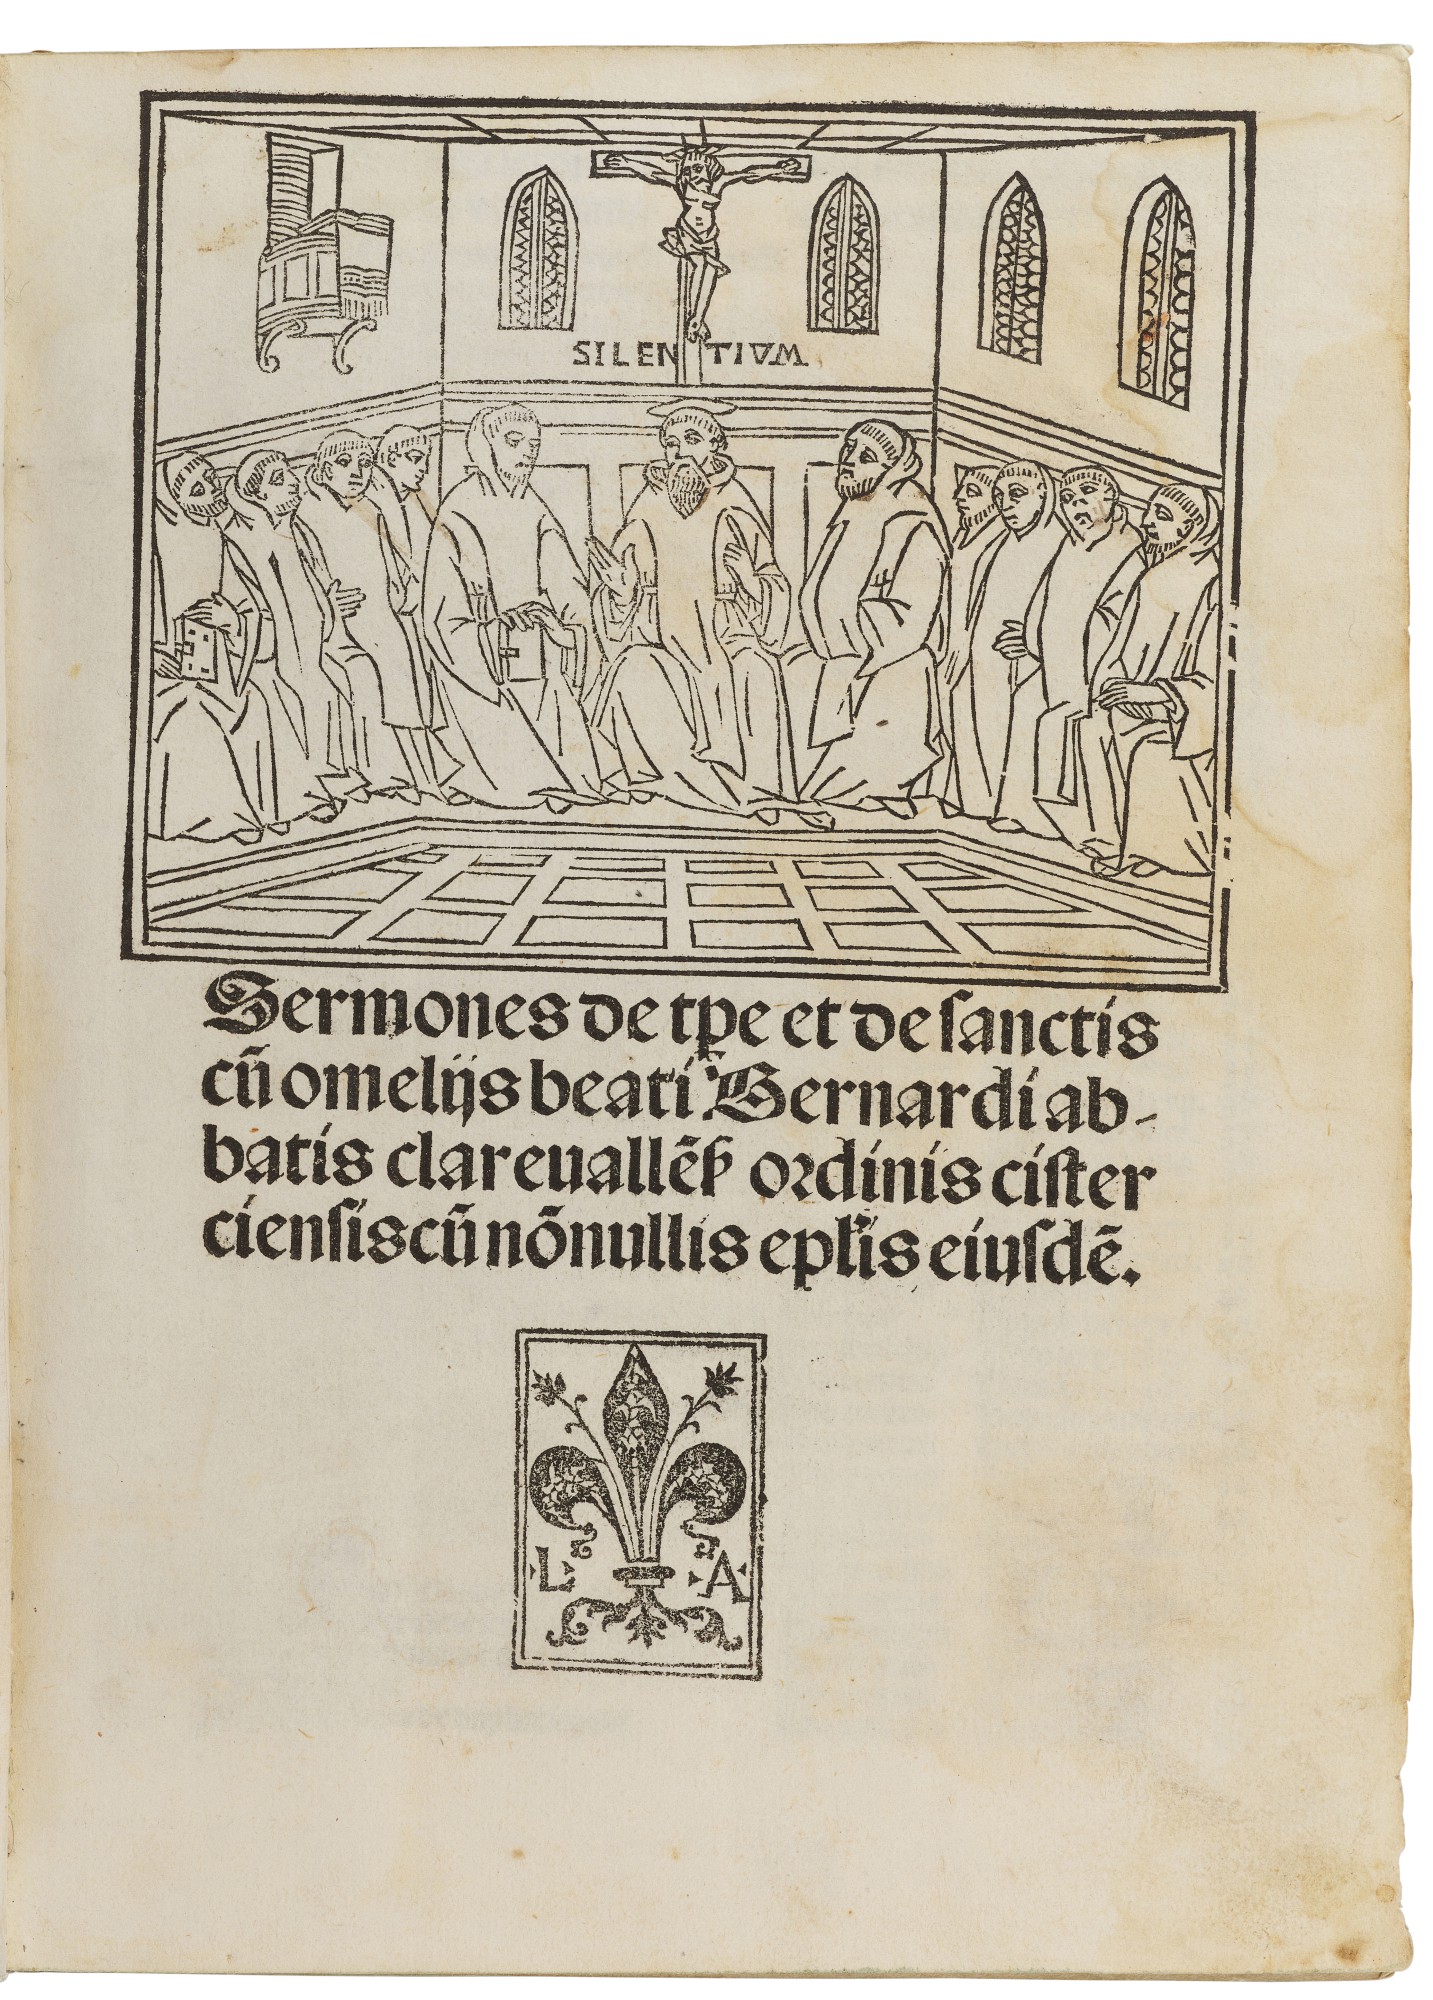 SILENTIVM
Sermones de tp̄e et de ſanctis
cū omelijs beati Bernardi ab-
batis clareuallēſ ordinis ciſter
cienſis cū nōnullis epl̓is eiuſdē.
L A